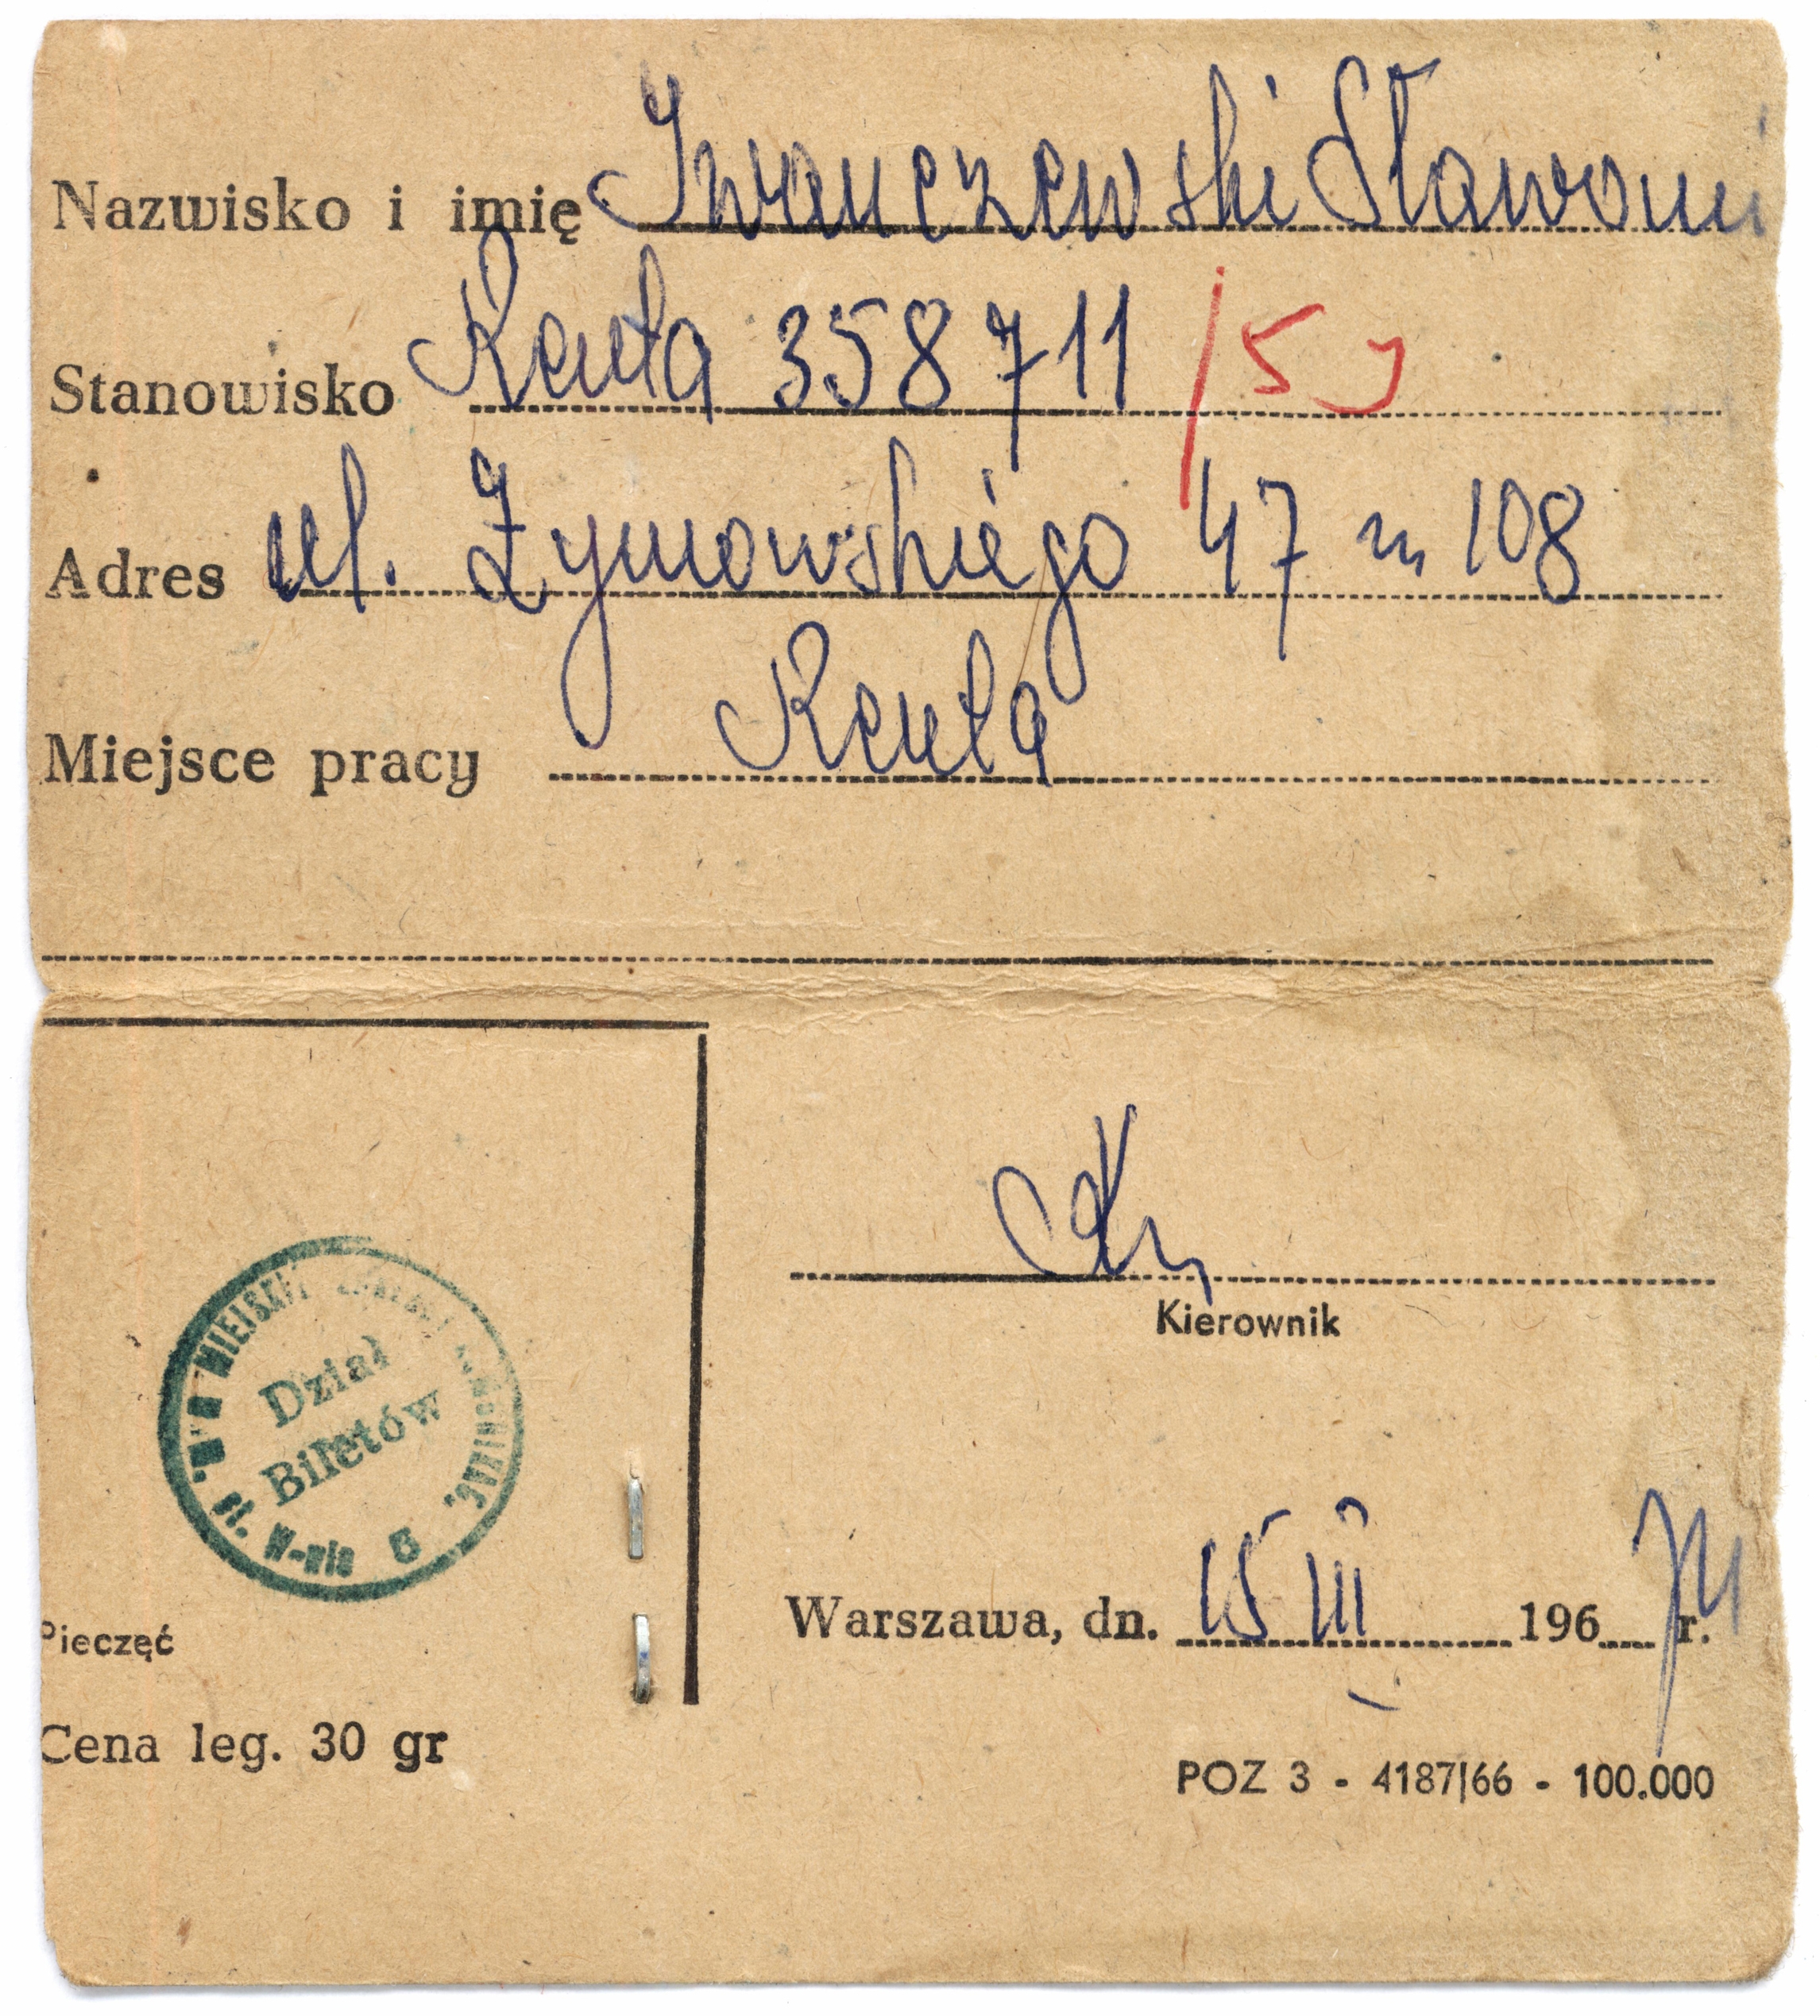 Nazwisko i imię Iwanczewski Sławomi
Stanowisko Renta 358711 /5 J
Adres ul. Żymowskiego 47 m 108
Miejsce pracy Renta
Kierownik
MIEJSKI
Dział
Biletów
W-wie 5
Warszawa, dn. 15 III 196 74 r.
Pieczęć
Cena leg. 30 gr
POZ 3 - 4187|66 - 100.000